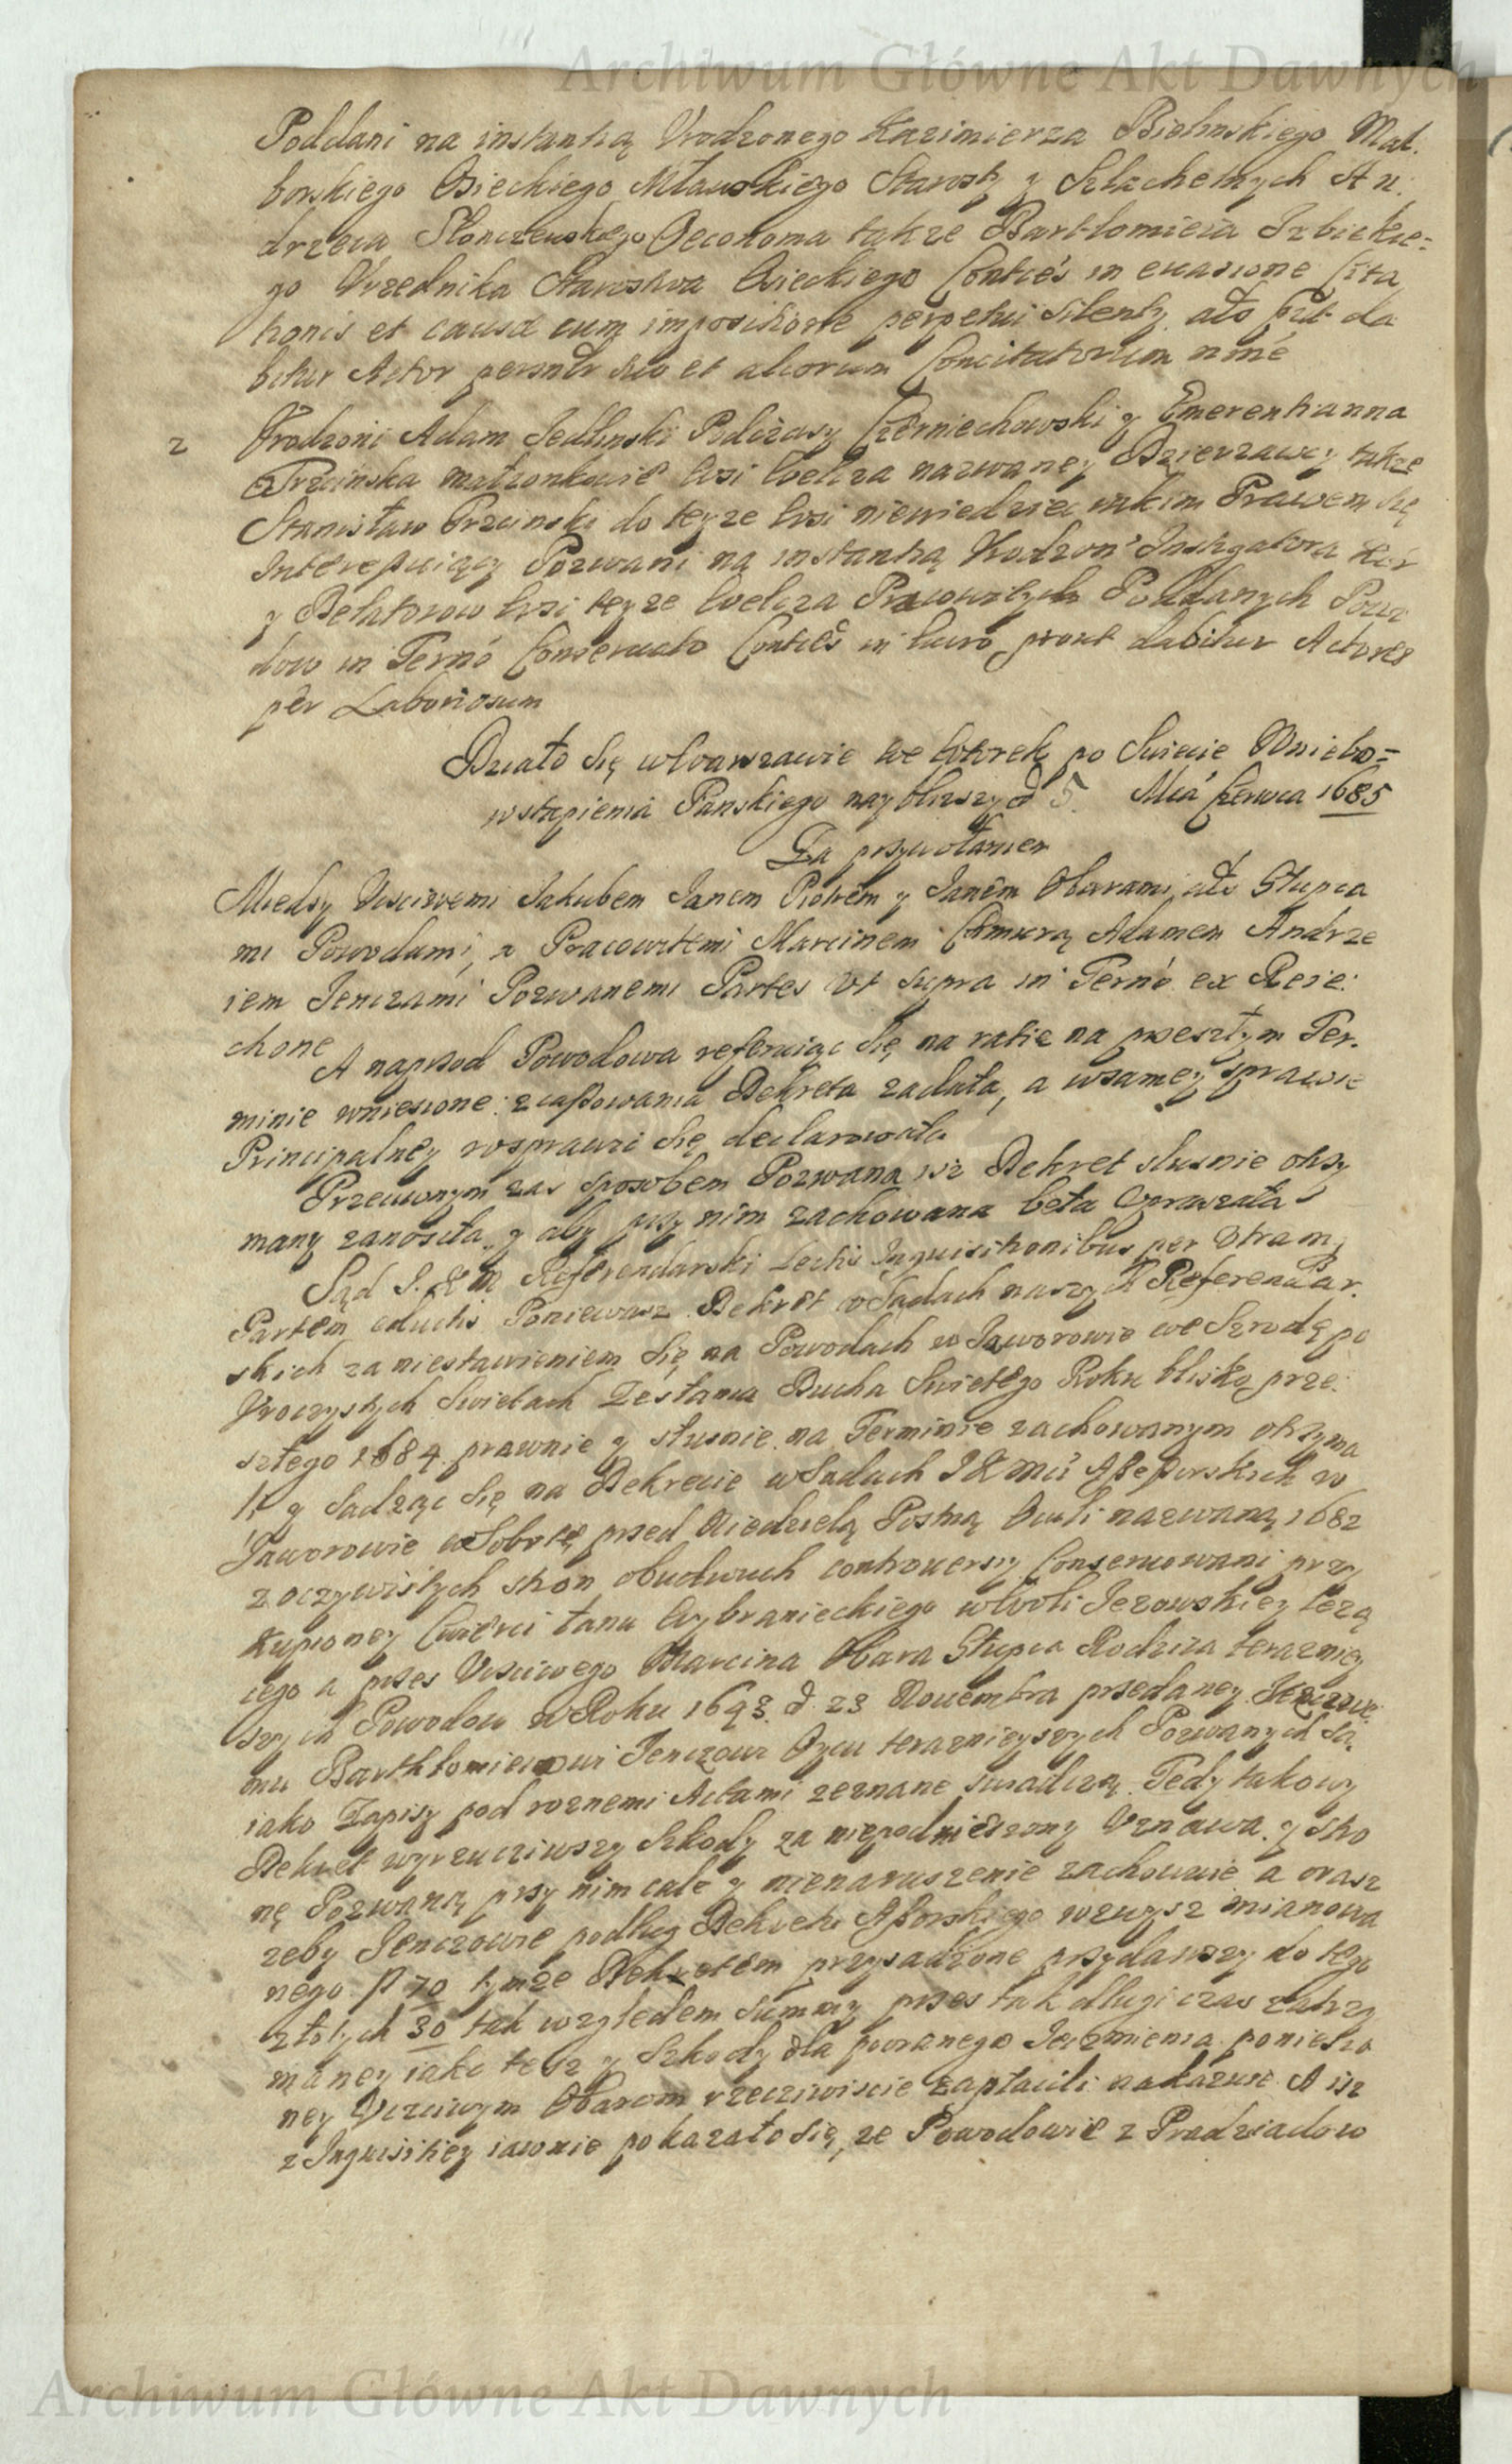 Archiwum Główne Akt Dawnych
Poddani na instantią Urodzonego Kazimierza Bielinskiego Mal:
borskiego Osieckiego Mławskiego Starosty y Szlachetnych An:
drzeia Słonczewskiego Oeconoma takze Bartłomieia Izbickie=
go Urzednika Starostwa Osieckiego Conties in euasione Cita
tionis et causæ cum impositione perpetui silenty ało prt da
bitur Actor personlr suo et aliorum Concitatorum nmé
2 Urodzoni Adam Jedlinski Podczasy Czerniechowski y Emerentianna
Trzcinska małzonkowie wsi Welcza nazwaney Dzierzawcy takze
Stanisław Trzcinski do teyze wsi niewiedziec iakim Prawem się
Interessuiący Pozwani na instantią Urodzon' Instigatora Kor
y Delatorow wsi teyze Welcza Pracowitych Poddanych Powo
dow in Termó Conseruato Conties in luco prout dabitur Actores
per Laboriosum
Działo się w Warszawie we Wtorek po Swiecie Wniebo=
wstąpienia Panskiego nayblizszy d 5. Mcá Czerwca 1685
Za przywołaniem
Miedzy Uczciwemi Jakubem Janem Piotrem y Janem Obarami ało Słupca
mi Powodami, a Pracowitemi Marcinem Chmurą Adamem Andrze
iem Jenczami Pozwanemi Partes ut supra in Termó ex Reie:
ctione
A naprzod Powodowa referuiąc się na ratie na przeszłym Ter.
minie wniesione: zcassowania Dekreta żadała, a w samey sprawie
Principalney rosprawić się declarowała
Przeciwnym zas sposobem Pozwana isz Dekret slusnie otrzy
many zanosiła y aby przy nim zachowana beła Upraszała
Sąd J. K M Referendarski Lectis Inquisitionibus per Utramq
Partem eductis Poniewasz Dekret w Sądach naszych Referendar.
skich za niestawieniem się na Powodach w Jaworowie we Szrodę po
Uroczystych Swietach Zesłania Ducha Swietego Roku blisko prze:
szłego 1684 prawnie y słusnie na Terminie zachowanym otrzyma
li y sadząc się na Dekrecie w Sądach J K Mci Assessorskich w
Jaworowie w Sobotę przed Niedzielą Postną Oculi nazwaną 1682
z oczywistych stron obudwuch controuersiy Conseruowani przy
kupioney Cwierci łanu Wybranieckiego w Woli Jezowskiey lezą
cego a przes Uczciwego Marcina Obara Słupca Rodzica terazniey
szych Powodow w Roku 1643. d. 23 Nouembra przedaney
mu Barthłomieiowi Jenczowi Oycu teraznieyszych Pozwanych są,
iako Zapisy pod roznemi Actami zeznane swiadczą. Tedy takowy
Dekret wyrzuciwszy szkody za niepodniesiony Uznawa y stro
nę Pozwaną przy nim cale y nienaruszenie zachowuie a oraz
zeby Jenczowie podług Dekretu Assorskiego wzwysz mianowa
nego fl 70 tymze Dekretem przysadzone przydawszy do tego
złotych 30 tak względem summy przes tak długi czas zatrzy
maney iako tesz y szkody dla pooranego Jęczmienia poniesio
ney Uczciwym Obarom rzeczwiscie zapłacili nakazuie. A isz
z Inquisitiey iawnie pokazało się, ze Powodowie z Pradziadow
Archiwum Główne Akt Dawnych